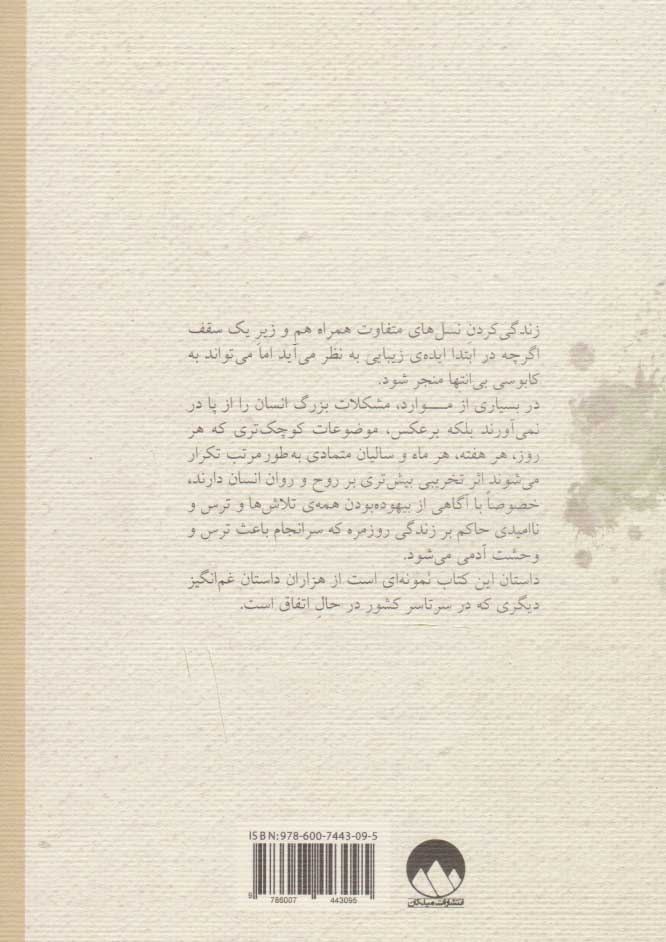 زندگی‌کردن نسل‌های متفاوت همراه هم و زیرِ یک سقف
اگرچه در ابتدا ایده‌ی زیبایی به نظر می‌آید اما می‌تواند به
کابوسی بی‌انتها منجر شود.
در بسیاری از مــوارد، مشکلات بزرگ انسان را از پا در
نمی‌آورند بلکه برعکس، موضوعات کوچک‌تری که هر
روز، هر هفته، هر ماه و سالیان متمادی به‌طور مرتب تکرار
می‌شوند اثر تخریبی بیش‌تری بر روح و روان انسان دارند،
خصوصاً با آگاهی از بیهوده‌بودن همه‌ی تلاش‌ها و ترس و
ناامیدی حاکم بر زندگی روزمره که سرانجام باعث ترس و
وحشت آدمی می‌شود.
داستان این کتاب نمونه‌ای است از هزاران داستان غم‌انگیز
دیگری که در سرتاسر کشور در حالِ اتفاق است.
ISBN:978-600-7443-09-5
9 786007 443095
انتشارات میلکان